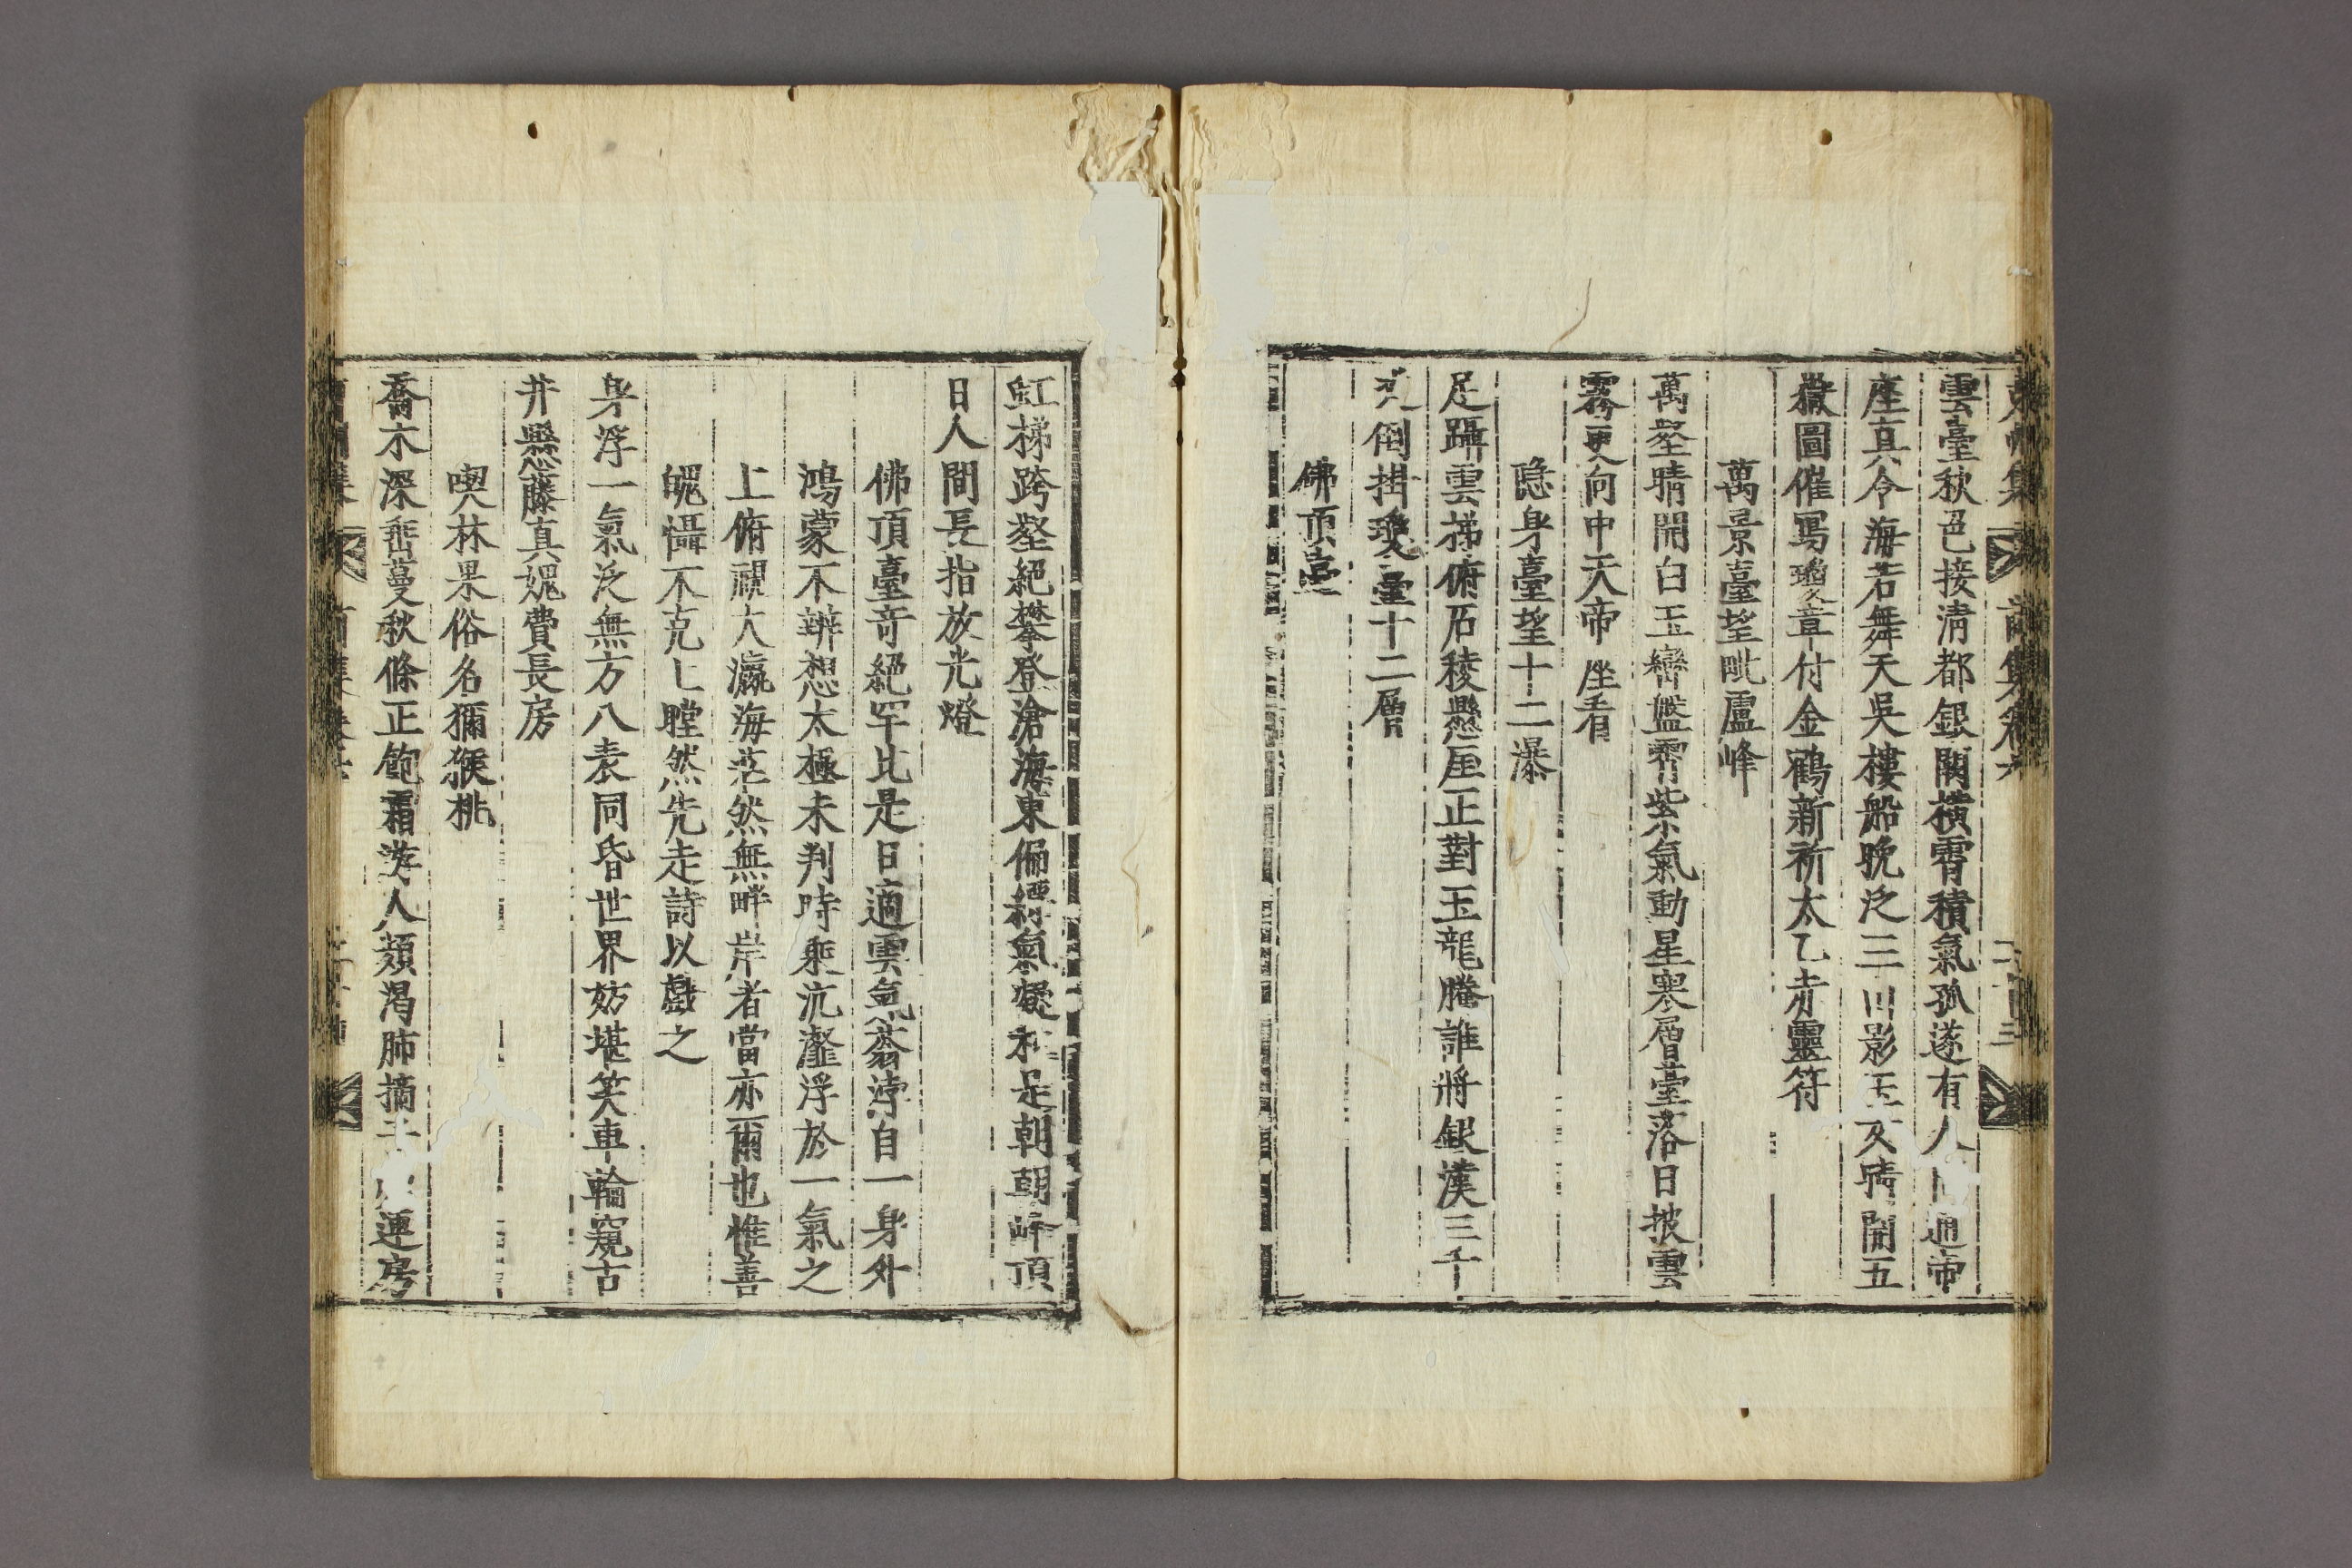 雲臺秋邑接淸都銀闕橫霄積氣孤遂有人間通帝
座真令海若舞天吳樓船晩泛三川影玉文晴開五
嶽圖催寫瓊章付金鶴新祈太乙赤靈符
萬景臺望毗盧峰
萬壑晴開白玉巒盤霄紫氣動星寒層臺落日披雲
霧更向中天帝座看
隱身臺望十二瀑
足躡雲梯俯石稜懸厓正對玉龍騰誰將銀漢三千
尺倒掛瓊臺十二層
佛頂臺
虹梯跨壑絕攀登滄海東偏縹氣凝 是朝朝峰頂
日人間長指放光燈
佛頂臺竒絕罕比是日適雲氣蓊浡自一身外
鴻蒙不辨想太極未判時乘沆瀣浮於一氣之
上俯視大瀛海茫然無畔岸者當亦爾也惟善
䰟懾不克上瞠然先走詩以戲之
身浮一氣泛無方八表同昏世界妨堪笑車輪窺古
井懸藤真媿費長房
喫林果俗名獼猴桃
喬木深 蔓秋條正飽霜游人頮渴肺摘 蓮房